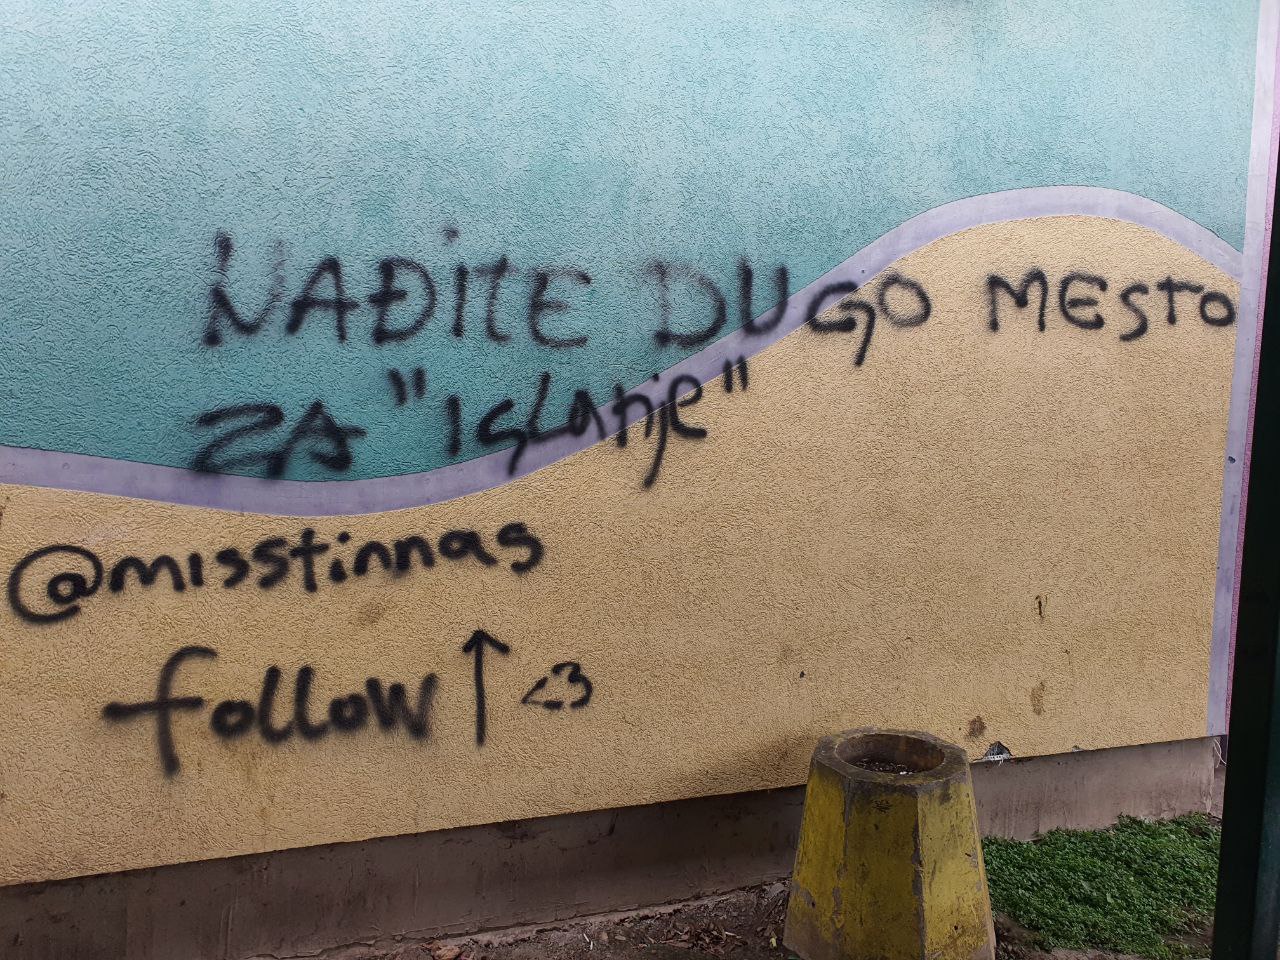 NAĐITE DUGO MESTO
ZA "ISLanje"
@misstinnas
follow ↑ <3